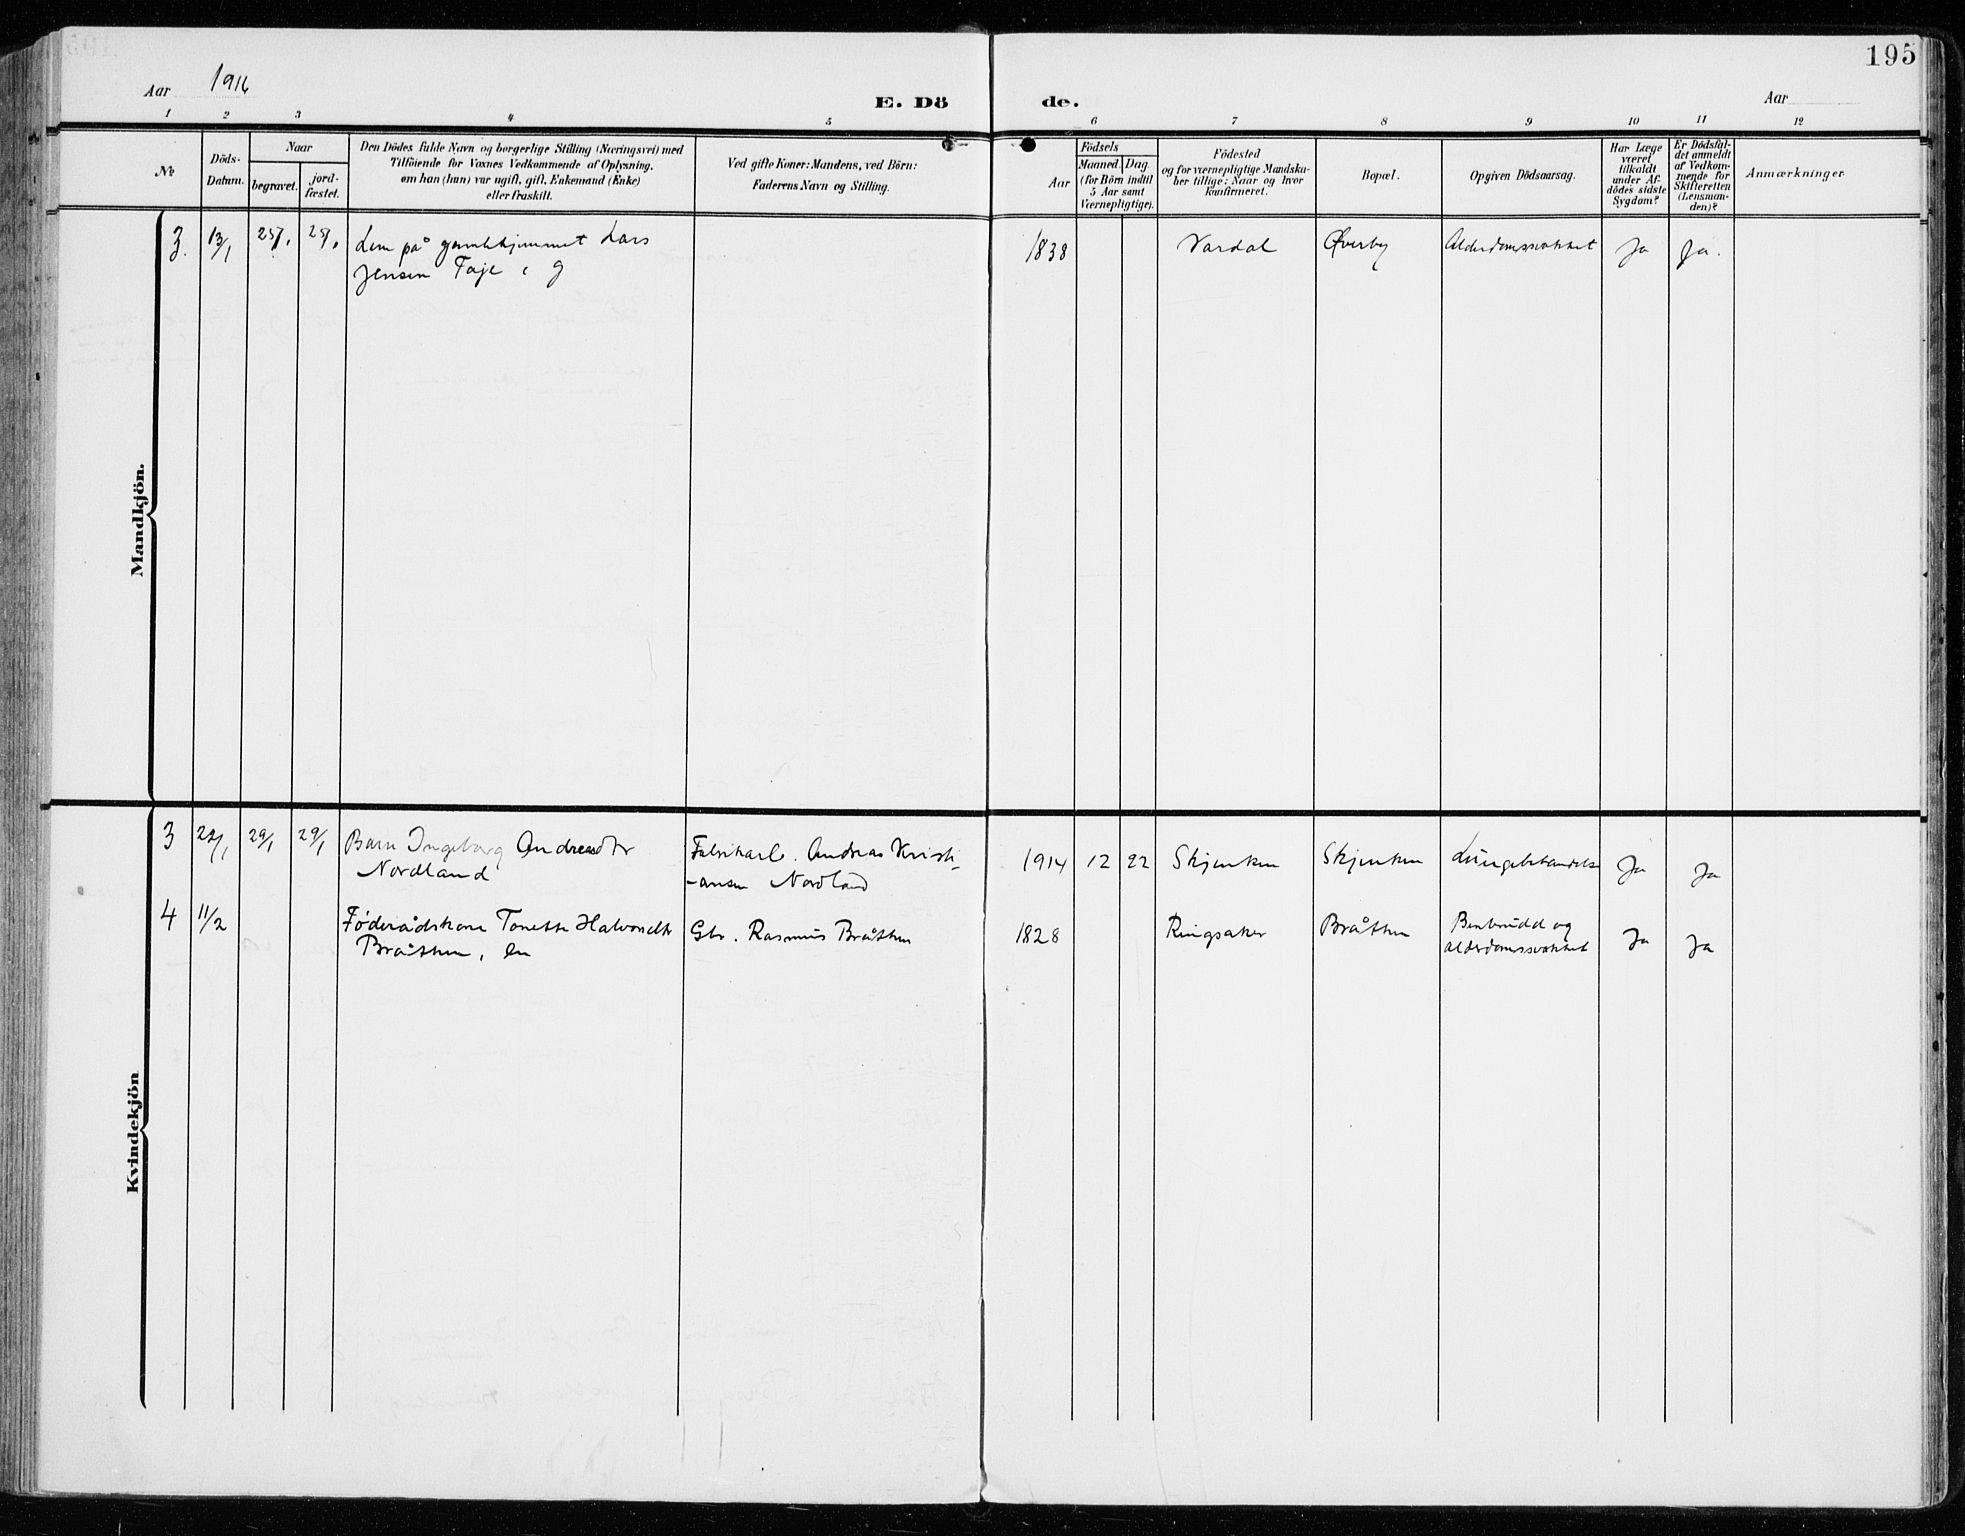 195
Aar 1916
E. Döde.
Aar
1 2 3 4 5 6 7 8 9 10 11 12
No
Döds-
Datum.
Naar
begravet.
jord-
fæstet.
Den Dödes fulde Navn og borgerlige Stilling (Næringsvei) med
Tilföiende for Voxnes Vedkommende af Oplysning,
om han (hun) var ugift, gift, Enkemand (Enke)
eller fraskilt.
Ved gifte Koner: Mandens, ved Börn:
Faderens Navn og Stilling.
Födsels
Aar
Maaned. Dag.
(for Börn indtil
5 Aar samt
Værnepligtige).
Födested
og for værnepligtige Mandska-
ber tillige: Naar og hvor
konfirmeret.
Bopæl.
Opgiven Dödsaarsag.
Har Læge
været
tilkaldt
under Af-
dödes sidste
Sygdom?
Er Dödsfal-
det anmeldt
af Vedkom-
mende for
Skifteretten
(Lensman-
den)?
Anmærkninger
Mandkjön.
3. 13/1 25/1 25/1 Lem på gamlehjemmet Lars
Jensen g
1838 Vardal Øverby Alderdomssvakhet Ja Ja.
Kvindekjön
3 22/1 29/1 29/1 Barn Ingeborg Andreasdtr
Nordland
Fabrikarb. Andreas Kristi-
-ansen Nordland
1914 12 22 Skjenken Skjenken Lungebetændelse Ja Ja
4 11/2 Føderådskone Tonette Halvorsdtr
Bråthen, en
Gbr. Rasmus Bråthen
1828 Ringsaker Bråthen Benbrudd og
alderdomssvakhet Ja Ja